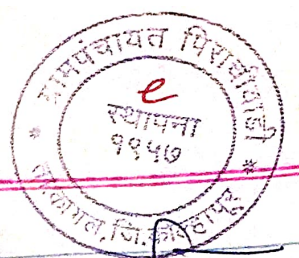 ग्रामपंचायत पिराचीवाडी
स्थापना
१९५७
ता.कागल,जि.कोल्हापूर